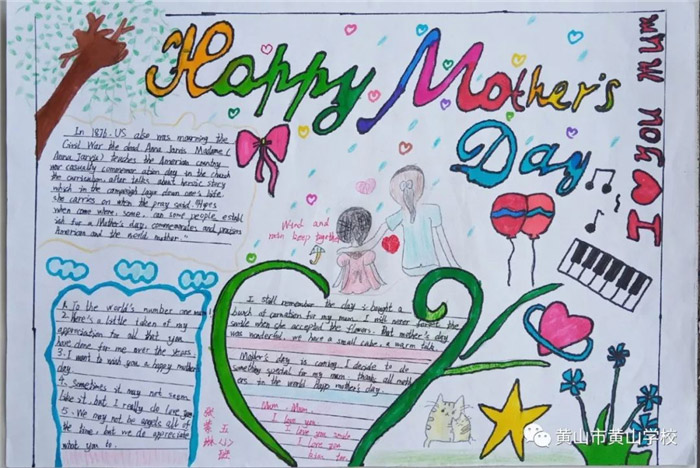 Happy Mother's
Day
I you mum
In 1876. US also was mourning the
Civil War the dead Anna Jarvis Madame (
Anna Jarvis) teaches the American country
nor casually commemor ation day in the church
the curriculum, after talks about heroic story
which in the campaign lays down one's life
she carries on when the pray said: "Hopes
when come where, some, can some people establ
ist for a Mother's day, commemorates and praises
American and the world mother."
Wind and
rain keep together
1. To the world's number one mum!
2. Here's a little taken of my
appreciation for all that you
have done for me over the years.
3. I want to wish you a happy mother's
day.
4. sometimes it may not seem
like it. but I really do love you
5. We may not be angels all of
the time, but we do appreciate
what you do.
I still remember the day is bought a
bunch of carnation for my mum. I will never forget the
smile when she accepted the flower. That mother's day
was wonderful. we have a small cake, a warm talk.
Mother's day is coming. I decide to do
something special for my mum. thinks all moth
ers in the world happy mother's day.
Mum. Mum.
I love you.
I love you smile
I love you
五
班
黄山市黄山学校